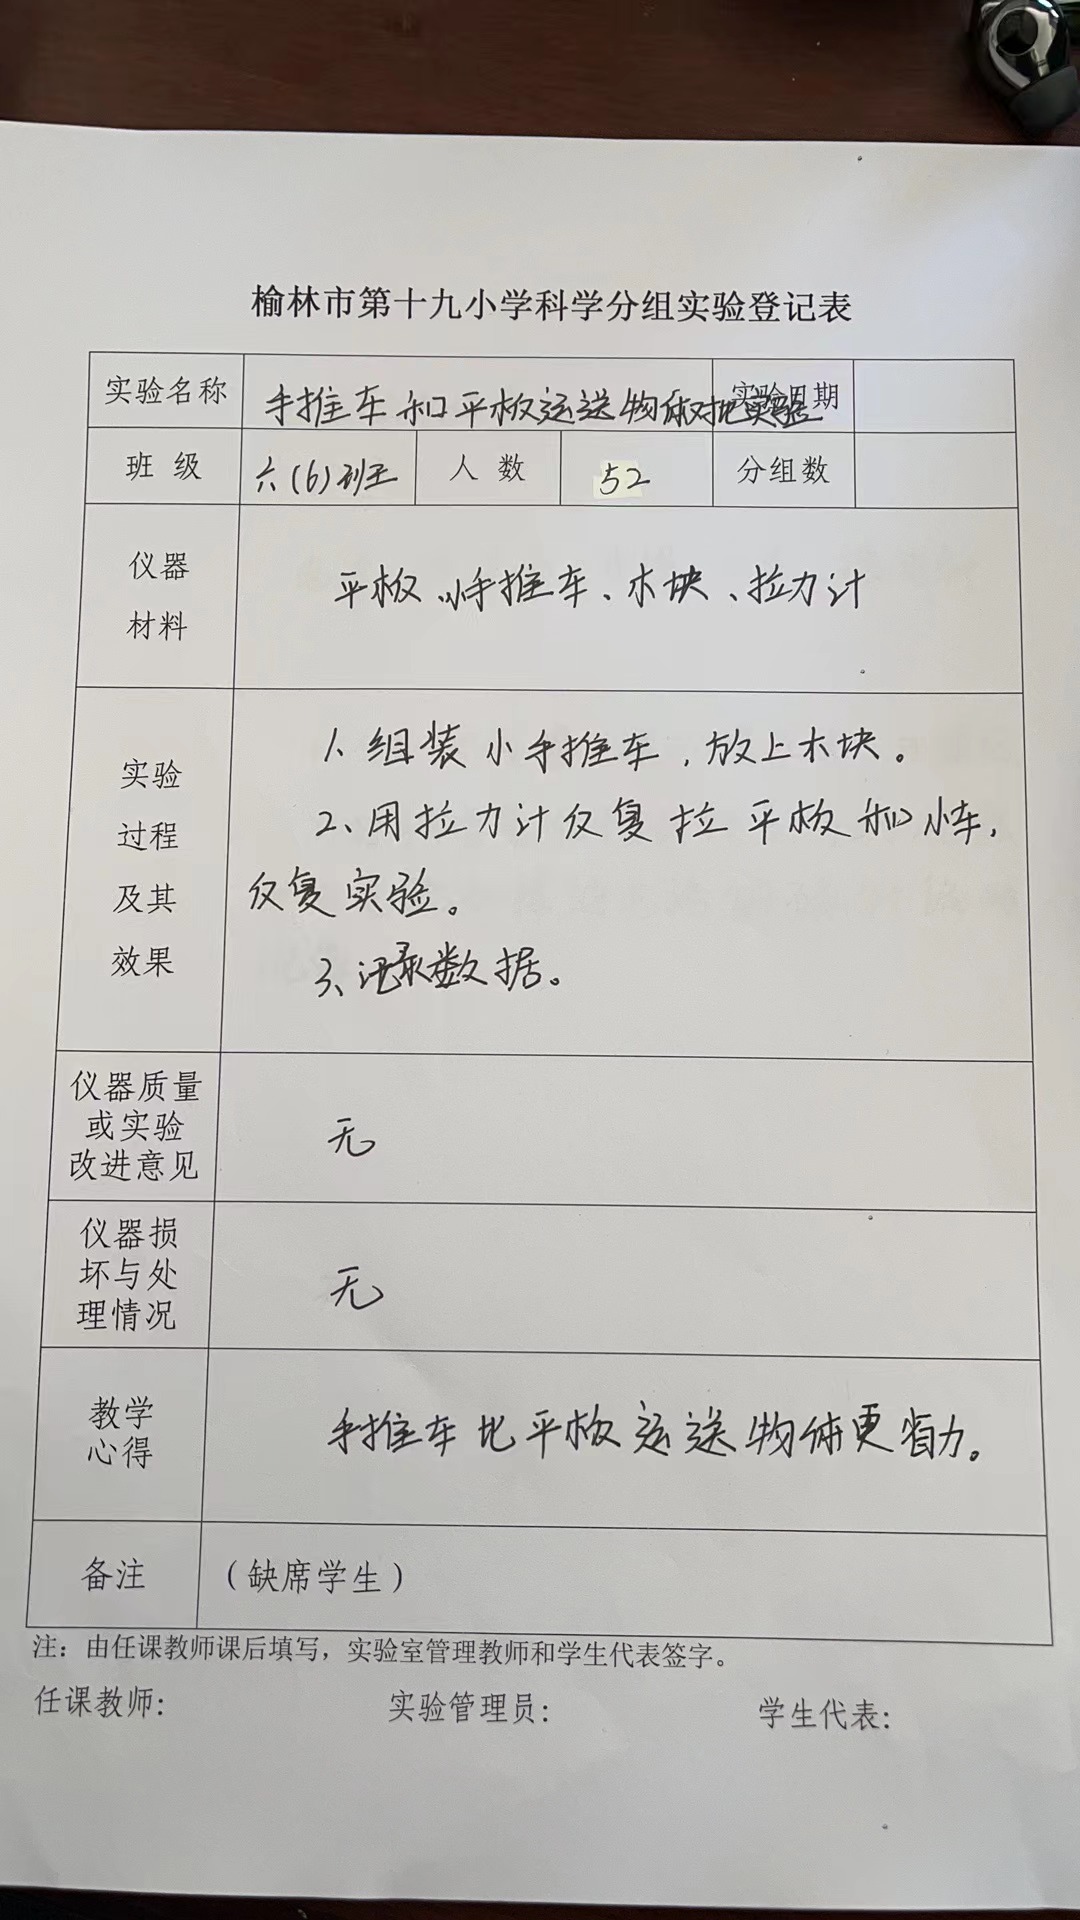 榆林市第十九小学科学分组实验登记表
实验名称 手推车和平板运送物体对比实验 实验日期
班级 六(6)班 人数 52 分组数
仪器
材料
平板、小手推车、木块、拉力计
实验
过程
及其
效果
1、组装小手推车，放上木块。
2、用拉力计反复拉平板和小车，
反复实验。
3、记录数据。
仪器质量
或实验
改进意见
无
仪器损
坏与处
理情况
无
教学
心得
手推车比平板运送物体更省力。
备注 （缺席学生）
注：由任课教师课后填写，实验室管理教师和学生代表签字。
任课教师： 实验管理员： 学生代表：